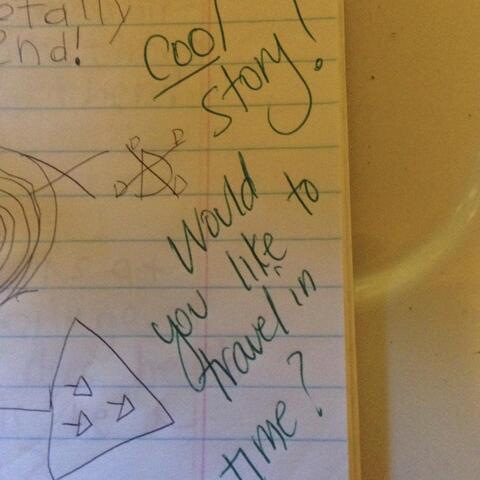 etally
end!
cool
story!
Would
you like to
travel in
time?